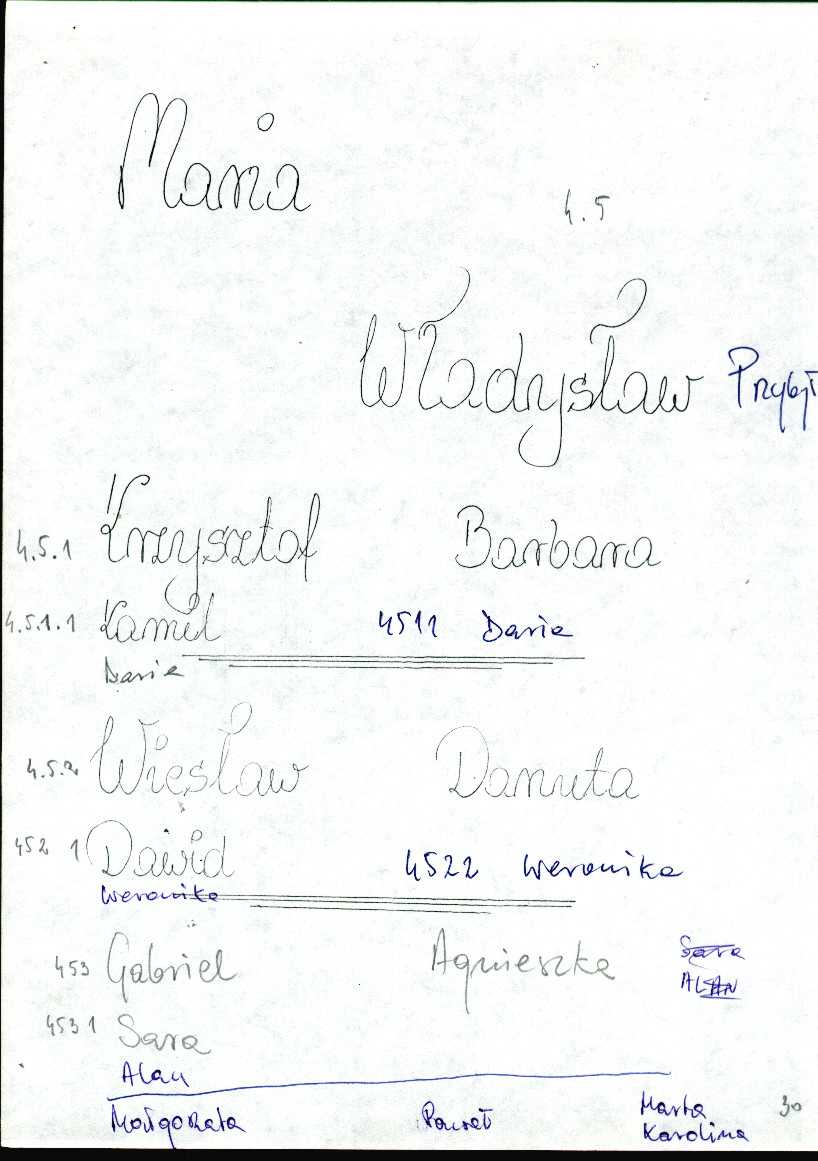 Maria
4.5
Władysław Przybył
4.5.1 Krzysztof Barbara
4.5.1.1 Kamil 4511 Daria
Daria
4.5.2 Wiesław Danuta
452 1 Dawid 4522 Weronika
Weronika
453 Gabriel Agnieszka Sara
ALAN
453 1 Sara
Alan
Małgorzata Paweł Marta 30
Karolina